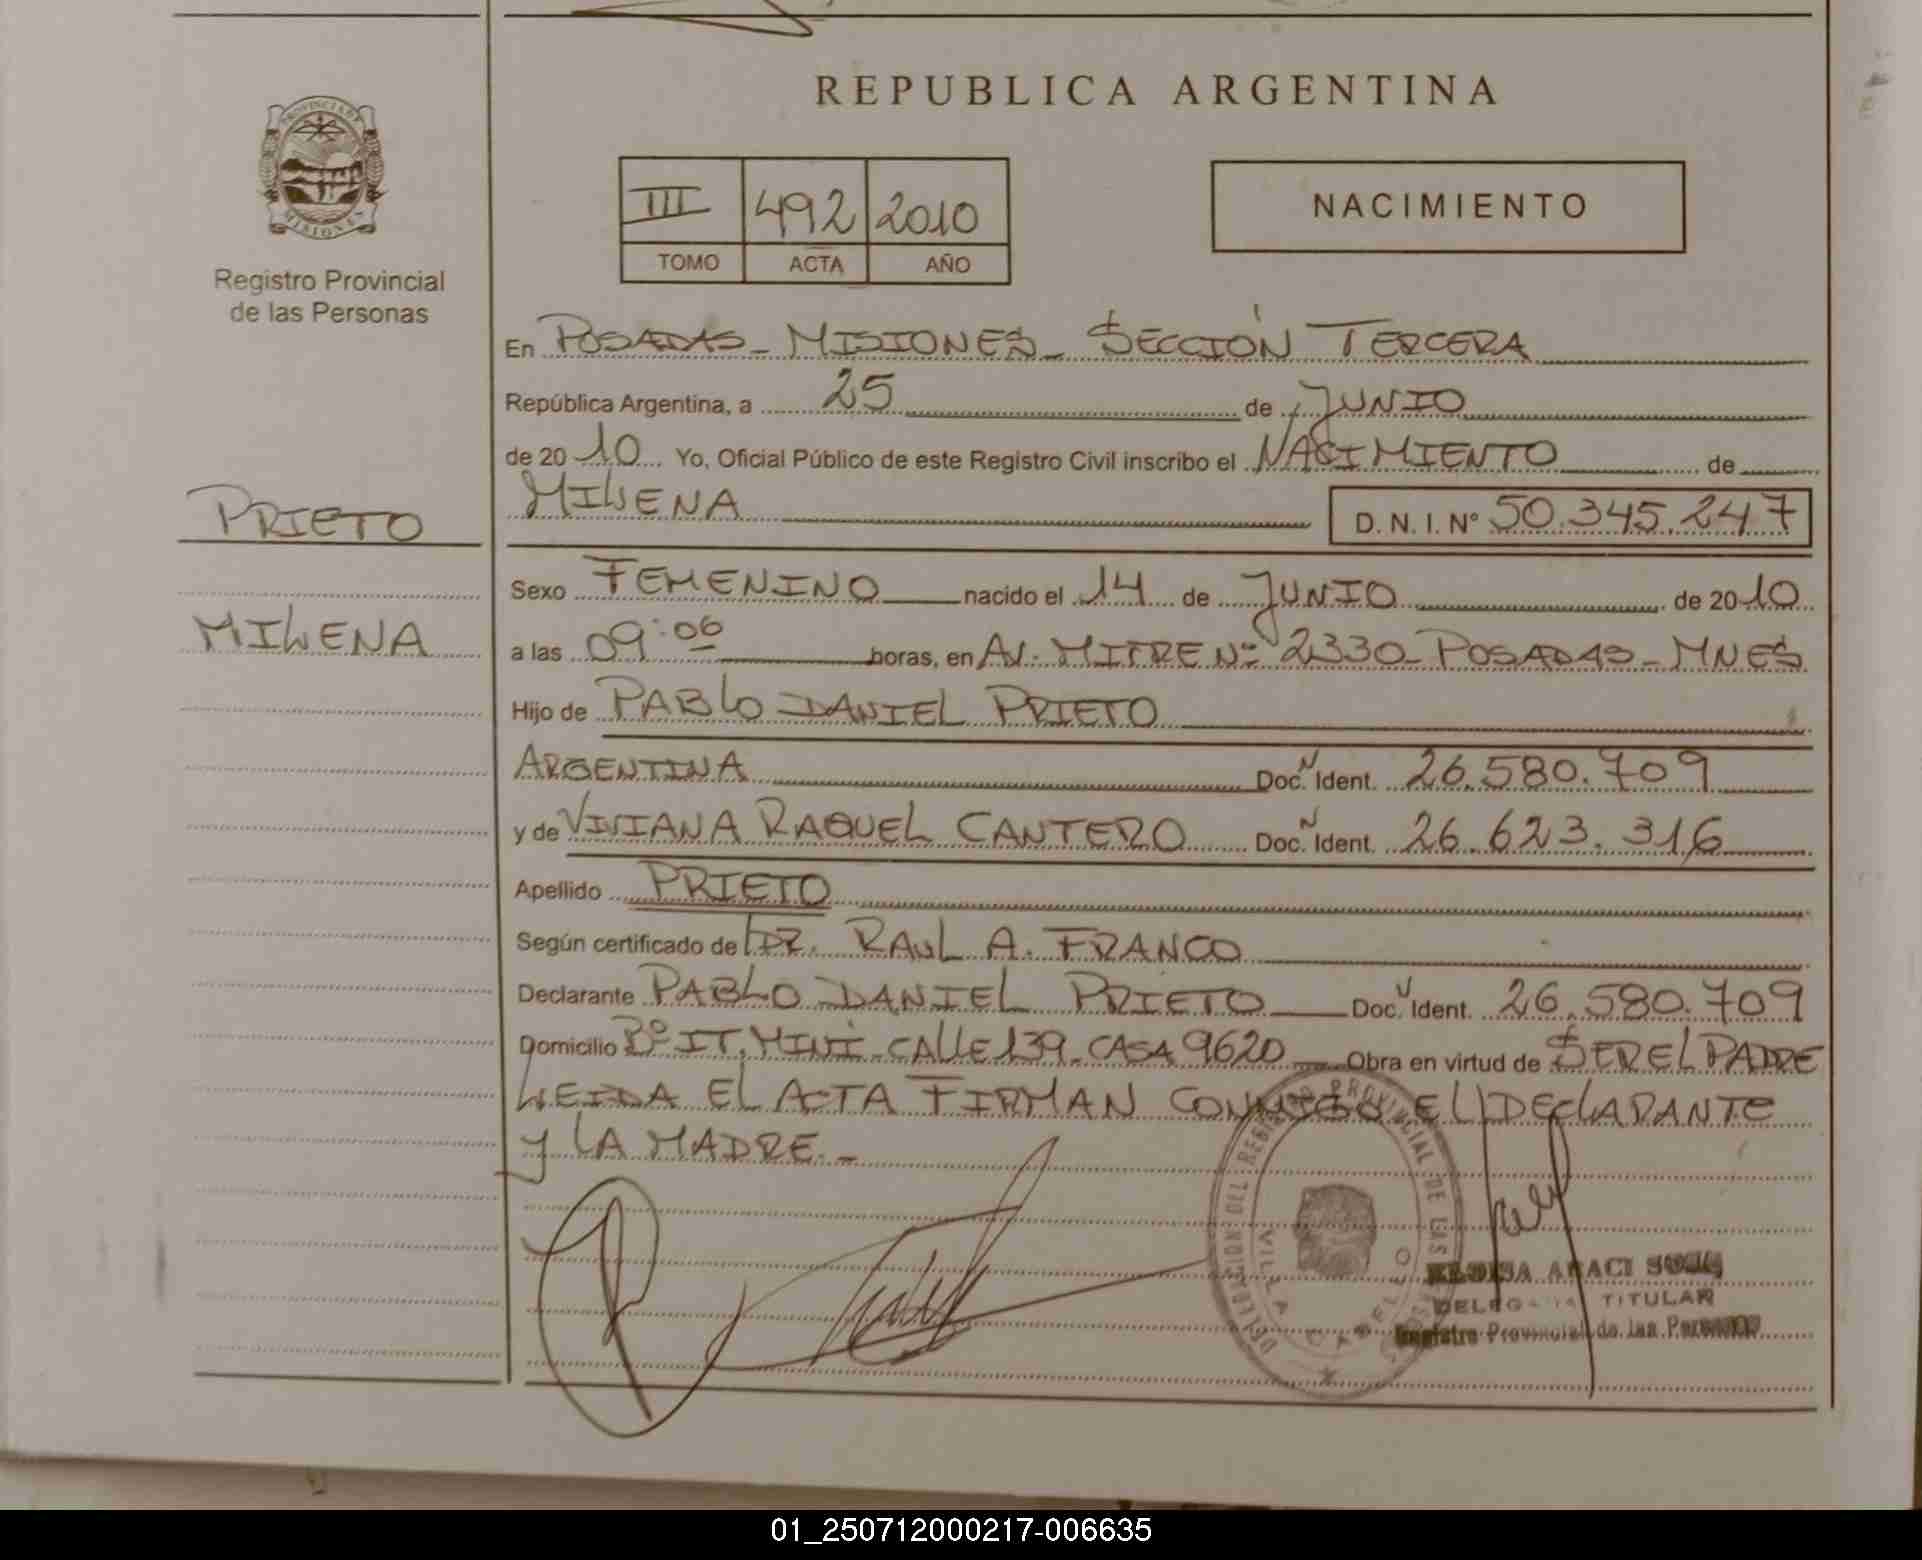 REPUBLICA ARGENTINA
PROVINCIA DE MISIONES
Registro Provincial
de las Personas
III 492 2010
TOMO ACTA AÑO
NACIMIENTO
En POSADAS - MISIONES - SECCIÓN TERCERA
República Argentina, a 25 de JUNIO
de 2010 Yo, Oficial Público de este Registro Civil inscribo el NACIMIENTO de
MILENA D.N.I. Nº 50.345.247
PRIETO
Sexo FEMENINO nacido el 14 de JUNIO de 2010
MILENA
a las 09:06 horas, en AV. MITRE Nº 2330 - POSADAS - MNES
Hijo de PABLO DANIEL PRIETO
ARGENTINA Doc. Ident. 26.580.709
y de VIVIANA RAQUEL CANTERO Doc. Ident. 26.623.316
Apellido PRIETO
Según certificado de DR. RAUL A. FRANCO
Declarante PABLO DANIEL PRIETO Doc. Ident. 26.580.709
Domicilio Bº IT. MINÍ - CALLE 139 - CASA 9620 Obra en virtud de SER EL PADRE
LEIDA EL ACTA FIRMAN CONMIGO EL DECLARANTE
y LA MADRE. -
DELEGACION DEL REGISTRO PROVINCIAL DE LAS PERSONAS
VILLA CABELLO
ARACI
DELEGADA TITULAR
Registro Provincial de las Personas
01_250712000217-006635